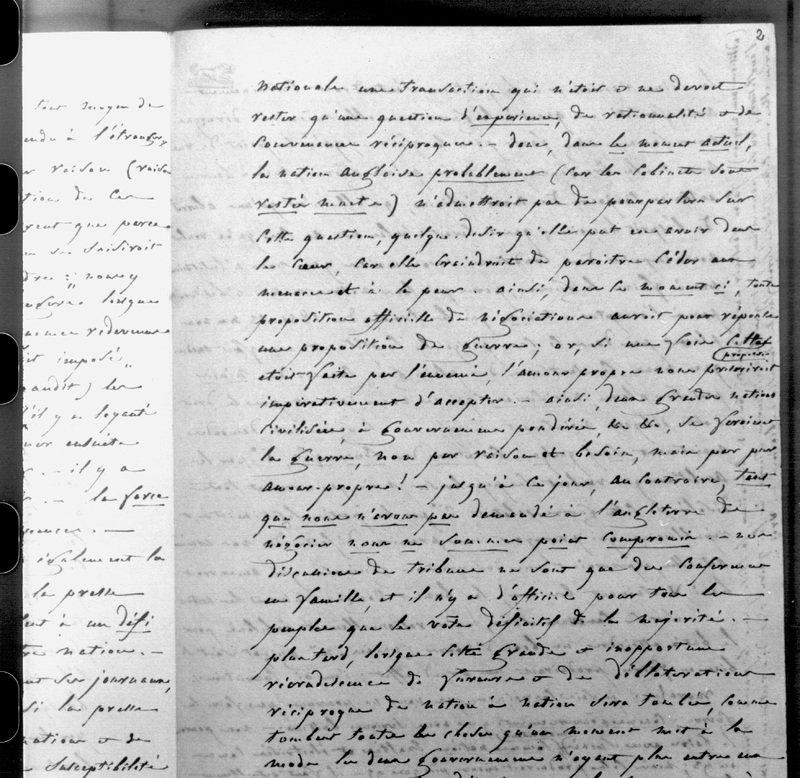 2
tout moyen de
à l'étranger,
raison (raison
tion de ces
que parce
se saisiroit
lorsque
redevenue
imposé"
les
il y a loyauté
ensuite
il y a
la force
également la
la presse
à un défi
nation. -
ses journaux,
si la presse
nation & de
susceptibilité
nationale une transaction qui n'étoit & ne devoit
rester qu'une question d'expérience, de rationnalité & de
convenance réciproque. - donc, dans le moment actuel,
la nation Anglaise probablement (car les Cabinets sont
restés muets) n'admettroit pas de pourparlers sur
cette question, quelque désir qu'elle put en avoir dans
le cœur, car elle craindroit de paroitre céder aux
menaces et à la peur. ainsi, dans le moment ci, toute
proposition officielle de négociations auroit pour réponse
une proposition de guerre; or, si une fois cette
proposition
étoit faite par l'ennemi, l'amour propre nous prescriroit
impérativement d'accepter. - ainsi, deux grandes nations
civilisées, à gouvernemens pondérés, &a &a, se feroient
la guerre, non par raison et besoin, mais par pur
amour-propre! - jusqu'à ce jour, au contraire, tant
que nous n'avons pas demandé à l'angleterre de
négocier nous ne sommes point compromis. - nos
discussions de tribune ne sont que des
en famille, et il n'y a d'officiel pour tous les
peuples que le vote définitif de la majorité. -
plus tard, lorsque cette grande & inopportune
recrudescence de & de dillatérations
réciproque de nation à nation sera tombée, comme
tombent toutes les choses qu'un moment met à la
mode les deux gouvernemens n'ayant plus entre eux